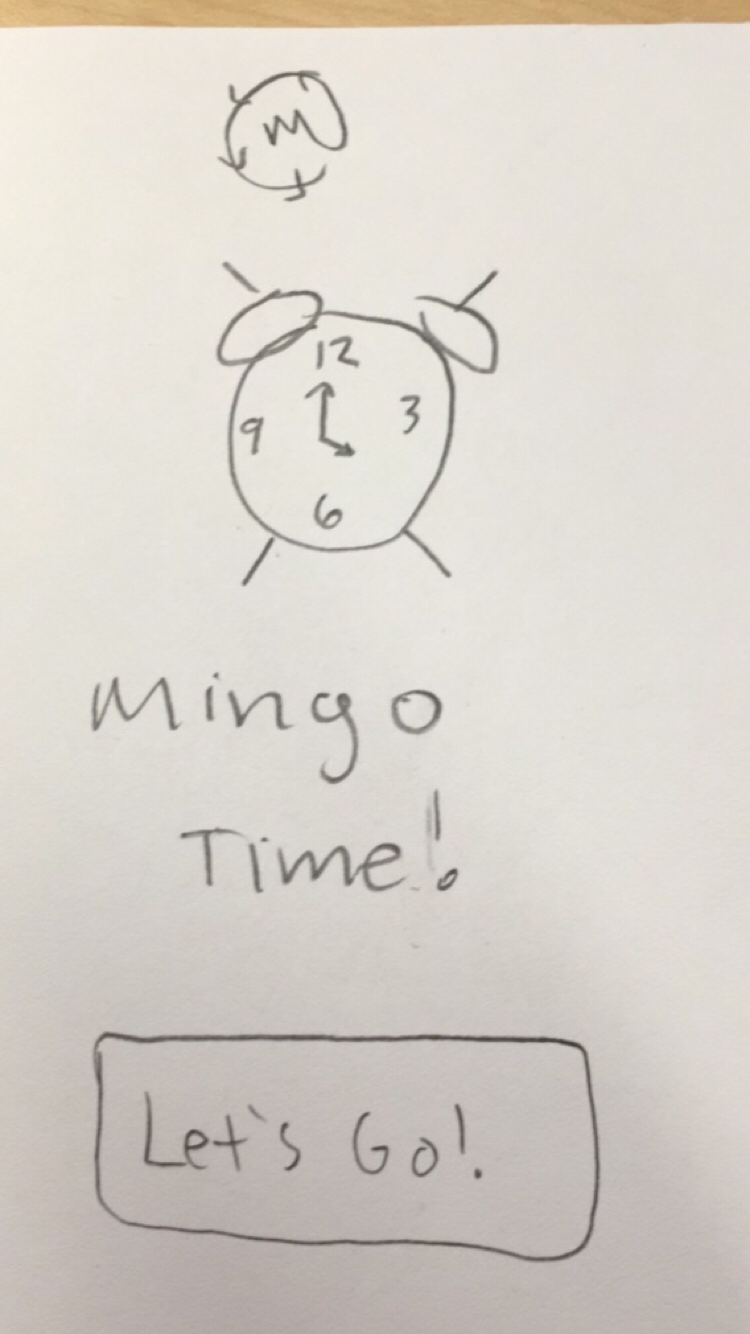 M
12
9 3
6
Mingo
Time!
Let's Go!